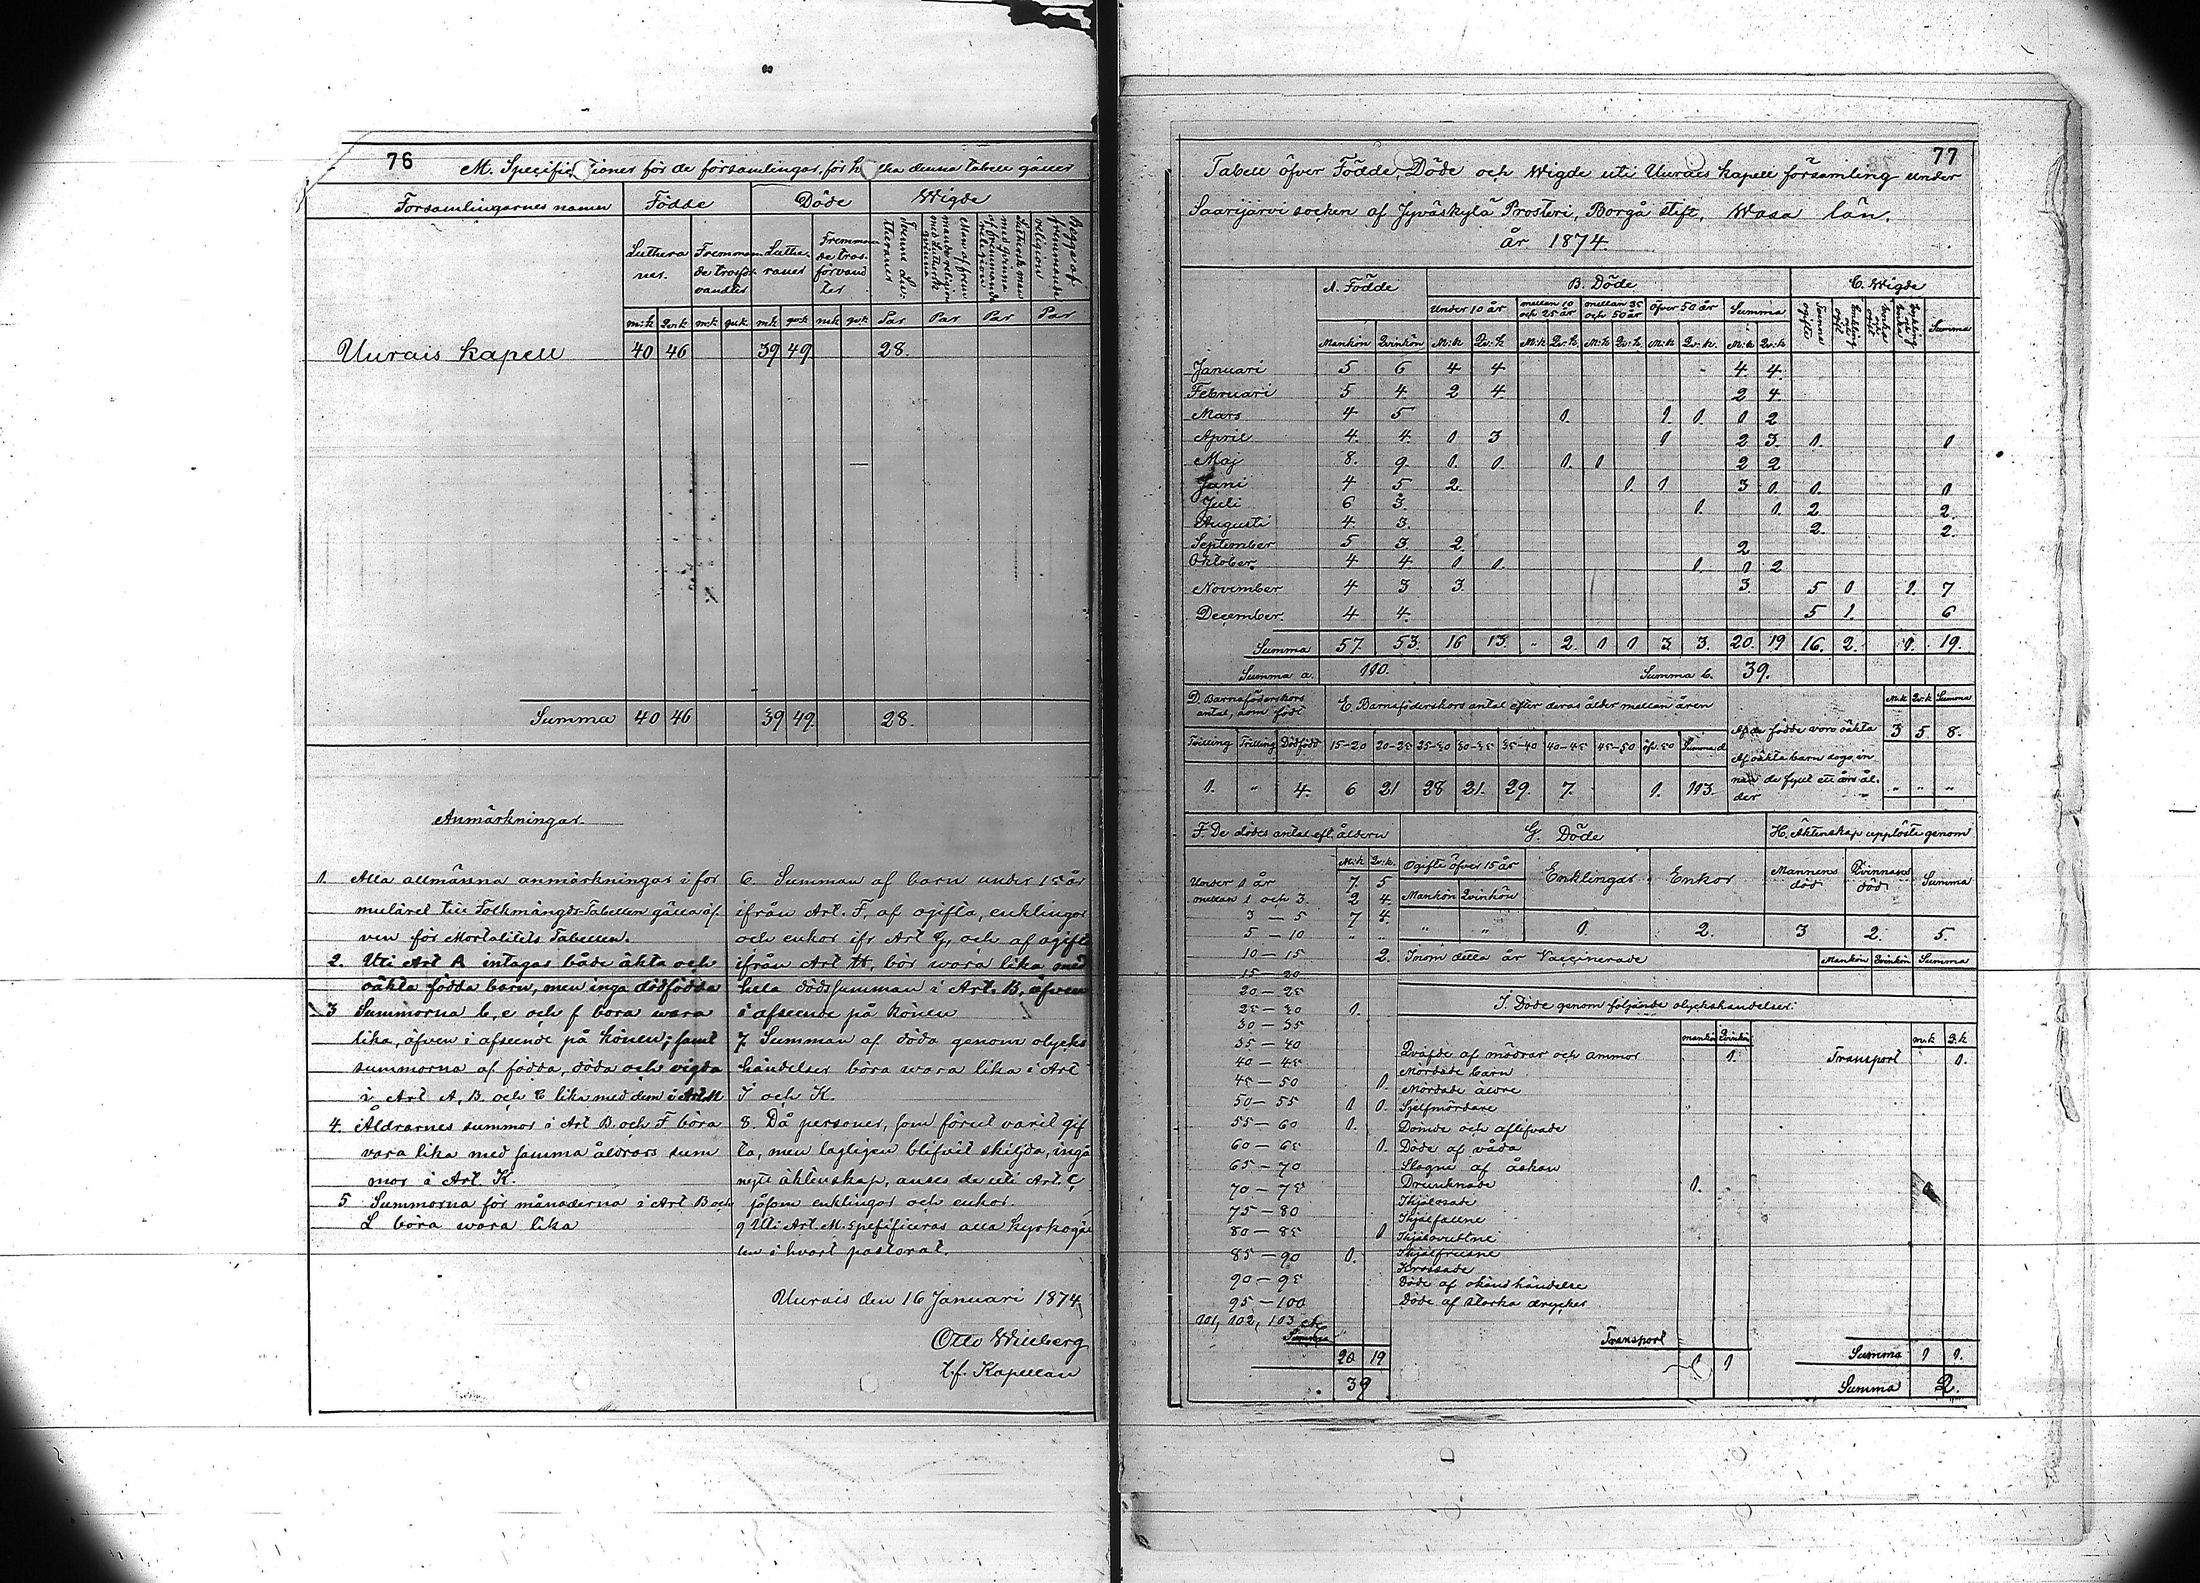 76
M. Specificationer för de församlingar, för hvilka denna tabell gäller
Församlingarnes namn Födde Döde Wigde
Luthera ner. Fremman de trosför vandter Luthe raner Fremman de tros förvand ter
m:k qv:k m:k qv:k m:k qv:k m:k qv:k Par Par Par Par
Uurais kapell 40 46 39 49 28.
Summa 40 46 39 49 28.
Anmärkningar
1. Alla allmänna anmärkningar i for
muläret till Folkmängds-Tabellen gälla äf.
ven för Mortalitets Tabellen.
2. Uti Art A intagas både äkta och
oäkta födda barn, men inga dödfödda
3 Summorna b, e och f bora wara
lika, äfven i afseende på könen; samt
summorna af födda, döda och vigda
i Art A, B och C lika med dem i Art M
4. Åldrarnes summor i Art B och F böra
vara lika med samma åldrars sum
mor i Art K.
5 Summorna för månaderna i Art B och
L böra wara lika
6. Summan af barn under 15 år
ifrån Art. F, af ogifta, enklingar
och enkor ifr Art G, och af ogifte
ifrån Art H, bör wara lika med
hela dödssumman i Art. B, äfven
i afseende på könen
7. Summan af döda genom olycks
händelser böra wara lika i Art
J och K.
8. Då personer, som förut varit gif
ta, men lagligen blifvit skilda, ingå
nytt äktenskap, anses de uti Art. C
såsom enklingar och enkor.
9 Uti Art M. speficiseras alla kyrkogäl
len i hvart pastorat.
Uurais den 16 Januari 1874
Otto Wieberg
t.f. Kapellan
77
Tabell öfver Födde, Döde och Wigde uti Uurais kapell församling under
Saarijärvi socken af Jyväskylä Prosteri, Borgå stift, Wasa län.
år 1874.
A. Födde B. Döde C. Wigde
Under 10 år mellan 10 och 25 år mellan 25 och 50 år öfver 50 år Summa Summa
Mankön Qvinkön M:k Qv:k M:k Qv:k M:k Qv:k M:k Qv:k M:k Qv:k
Januari 5 6 4 4 4 4
Februari 5 4 2 4 2 4
Mars 4 5 1. 1. 1. 1 2
April 4. 4. 1 3 1 2 3. 1. 1
Maj 8. 9. 1. 1. 1. 1 2 2
Juni 4 5 2. 1. 1 3 1. 1. 1
Juli 6 3. 1. 1. 2 2.
Augusti 4. 3. 2. 2.
September 5 3. 2. 2
Oktober 4 4. 1 1. 1. 1 2
November 4 3 3. 3. 5 1 1. 7
December. 4 4. 5 1. 6
Summa 57. 53. 16 13. " 2. 1 1 3 3. 20. 19 16. 2. 1. 19.
Summa a. 110. Summa b. 39.
D. Barnaföderskors antal, som födt E. Barnaföderskors antal efter deras ålder mellan åren M:k Qv:k Summa
Tvilling Trilling Dödfödt 15-20 20-25 25-30 30-35 35-40 40-45 45-50 öfv. 50 Summa d
Af de födde voro oäkta 3 5 8.
1. " 4. 6 21 28 21. 29. 7. 1. 113.
Af oäkta barn dogo, in
nan de fyllt ett års ål.
der " " "
F. De dödes antal eft. åldern G. Döde H. Äktenskap upplöste genom
M:k Qv:k. Ogifte öfver 15 år Enklingar Enkor Mannens död Qvinnans död Summa
Mankön Qvinkön
" " 1. 2. 3 2. 5.
Under 1 år 7. 5
mellan 1 och 3. 2 4.
3 — 5 7 4.
5 — 10 " "
10 — 15 2.
15 — 20
20 — 25
25 — 30 1.
30 — 35
35 — 40
40 — 45
45 — 50 1.
50 — 55 1 1.
55 — 60 1.
60 — 65 1.
65 — 70
70 — 75
75 — 80
80 — 85 1
85 — 90 1.
90 — 95
95 — 100
101, 102, 103 etc
Summa
20 19
39
Inom detta år Vaccinerade Mankön Qvinkön Summa
J. Döde genom följande olyckshändelser:
mankön Qvinkön m:k Q.k
Qväfde af mödrar och ammor 1. Transport 1.
Mördade barn
Mördade äldre
Sjelfmördare
Dömde och aflifvade
Döde af våda
Slagne af åskan
Drunknade 1.
Ihjälosade
Ihjälfallne
Ihjälsvultne
Ihjälfrusne
Krossade
Döde af okänd händelse
Döde af starka drycker
Transport 1 1
Summa 1 1.
Summa 2.